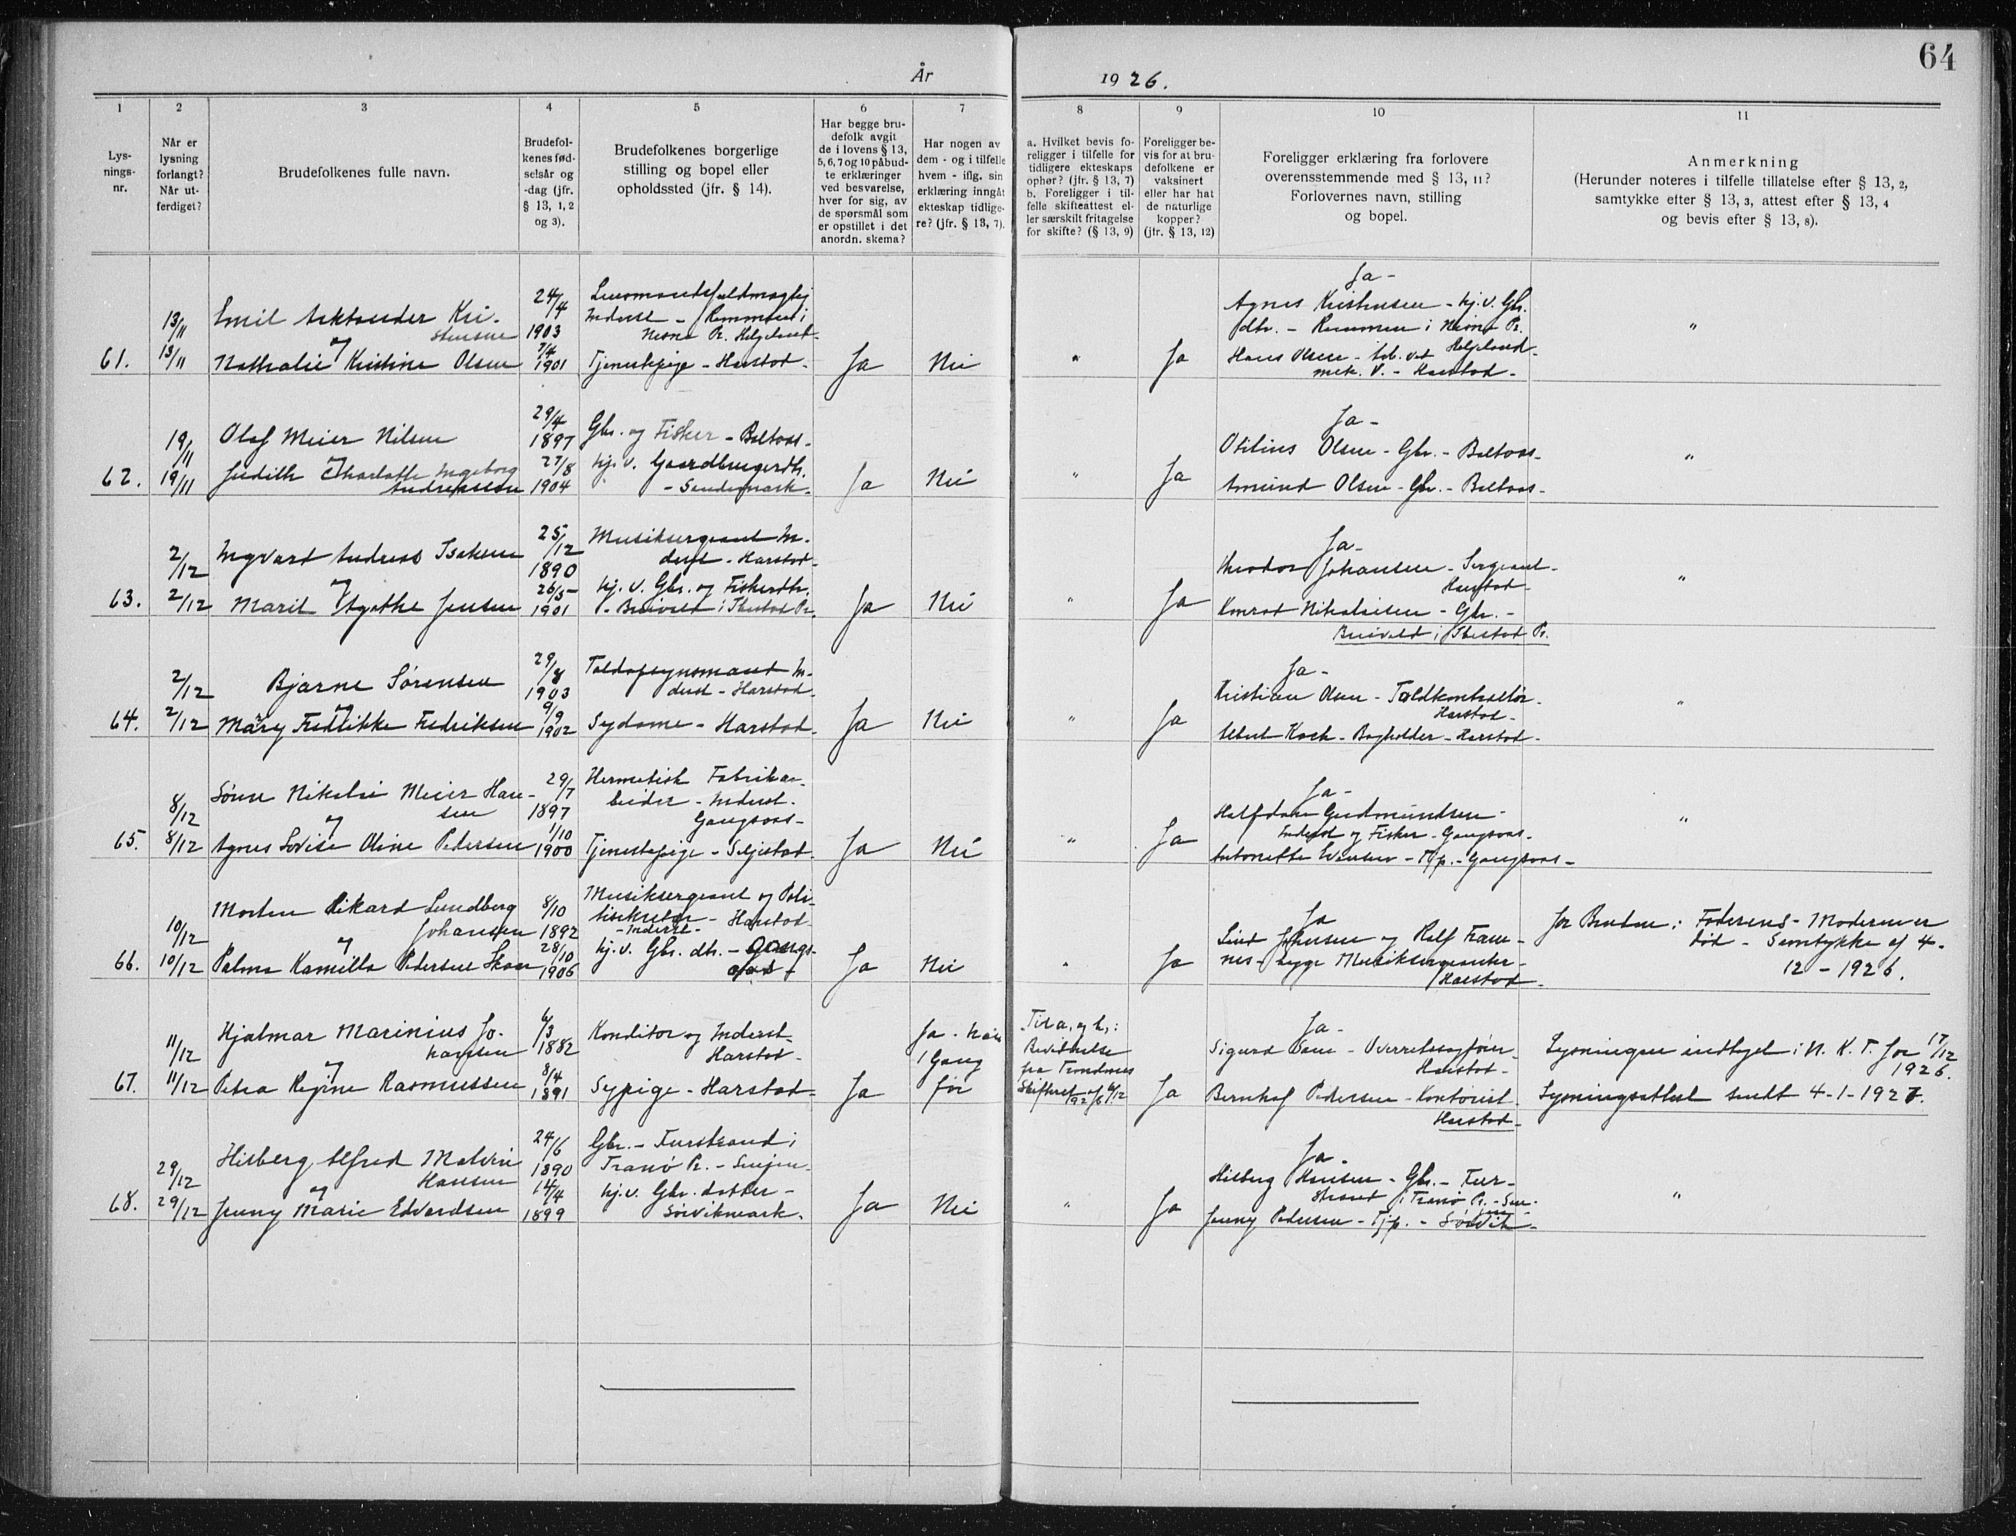 64
År 1926.
1 2 3 4 5 6 7 8 9 10 11
Lys-
nings-
nr.
Når er
lysning
forlangt?
Når ut-
ferdiget?
Brudefolkenes fulle navn.
Brudefol-
kenes fød-
selsår og
-dag (jfr.
§ 13, 1, 2
og 3).
Brudefolkenes borgerlige
stilling og bopel eller
opholdssted (jfr. § 14).
Har begge bru-
defolk avgit
de i lovens § 13,
5, 6, 7 og 10 påbud-
te erklæringer
ved besvarelse,
hver for sig, av
de spørsmål som
er opstillet i det
anordn. skema?
Har nogen av
dem - og i tilfelle
hvem - iflg. sin
erklæring inngåt
ekteskap tidlige-
re? (jfr. § 13, 7).
a. Hvilket bevis fo-
religger i tilfelle for
tidligere ekteskaps
ophør? (jfr. § 13, 7)
b. Foreligger i til-
felle skifteattest el-
ler særskilt fritagelse
for skifte? (§ 13, 9)
Foreligger be-
vis for at bru-
defolkene er
vaksinert
eller har hat
de naturlige
kopper?
(jfr. § 13, 12)
Foreligger erklæring fra forlovere
overensstemmende med § 13, 11?
Forlovernes navn, stilling
og bopel.
Anmerkning
(Herunder noteres i tilfelle tillatelse efter § 13, 2,
samtykke efter § 13, 3, attest efter § 13, 4
og bevis efter § 13, 8).
61.
13/11
13/11
Emil Aleksander Kri-
stensen
og
Nathalie Kristine Olsen
24/4
1903
7/4
1901
Lensmandsfuldmægtig
Inderst - Remmen i
Nesna Pr. Helgeland-
Tjenestepige - Harstad-
Ja
Nei
"
Ja
Ja-
Agnes Kristensen - hj.v. Gbr.
dtr. - Remmen i Nesna Pr.
Helgeland-
Hans Olsen - arb. ved
mek. V. - Harstad-
"
62.
19/11
19/11
Olaf Meier Nilsen
og
Judith Charlotte Ingeborg
Andreassen
29/4
1897
27/8
1904
Gbr. og Fisker - Beltaas-
hj.v. Gaardbrugerdtr.
- Sandemark-
Ja
Nei
"
Ja
Ja-
Otilius Olsen - Gbr. - Beltaas-
Amund Olsen - Gbr. - Beltaas-
"
63.
2/12
2/12
Ingvard Andreas Isaksen
og
Marit Agathe Jensen
25/12
1890
26/5-
1901
Musiksergeant In-
derst - Harstad-
hj.v. Gbr. og Fiskerdtr.
- Breivold i Ibestad Pr.
Ja
Nei
"
Ja
Ja-
Theodor Johansen - Sergeant-
Harstad-
Konrad Nikolaisen - Gbr. -
Breivold i Ibestad Pr.
"
64.
2/12
2/12
Bjarne Sørensen
og
Mary Fredrikke Fredriksen
29/8
1903
9/9
1902
Toldopsynsmand In-
derst - Harstad-
Sydame - Harstad-
Ja
Nei
"
Ja
Ja-
Kristian Olsen - Toldkontrollør-
Harstad-
Albert Koch - Bogholder - Harstad-
"
65.
8/12
8/12
Søren Nikolai Meier Han-
sen
og
Agnes Lovise Oline Pedersen
29/7
1897
1/10
1900
Hermetisk Fabrikar-
beider - Inderst-
Gangsaas-
Tjenestepige - Seljestad-
Ja
Nei
"
Ja
Ja-
Halfdan Gudmundsen-
Inderst og Fisker - Gangsaas-
Antonette - Tjp. - Gangsaas-
"
66.
10/12
10/12
Morten Rikard Lundberg
Johansen
og
Palma Kamilla Pedersen Skar
8/10
1892
28/10
1906
Musiksergeant og Poli-
tisekretær - Harstad-
-Inderst-
hj.v. Gbr. dtr. - Gangs-
aas-
Ja
Nei
"
Ja
Ja
Johansen og Rolf Fran-
nes - begge Musiksergeanter-
Harstad-
for Bruden: Faderens - Moderen er
død - Samtykke af 4-
12-1926.
67.
11/12
11/12
Hjalmar Marinius Jo-
hansen
og
Petra Regine Rasmussen
6/3
1882
8/4
1891
Konditor og Inderst
Harstad-
Sypige - Harstad-
Ja
Ja - han
1 Gang
før
Til a. og b.:
Bevidnelse
fra Trondenes
Skifteret af 6/12
1926
Ja
Ja-
Sigurd - Overretssagfører-
Harstad-
Bernhof Pedersen - Kontorist-
Harstad-
Lysningen indtaget i N. K. T. for 17/12
1926.
Lysningsattest sendt 4-1-1927.
68.
29/12
29/12
Hilberg Alfred Malvin
Hansen
og
Jenny Marie Edvardsen
24/6
1890
14/4
1899
Gbr. - Furstrand i
Tranø Pr. - Senjen-
hj.v. Gbr. datter-
Sørvikmark-
Ja
Nei
"
Ja
Ja-
Hilberg Hansen - Gbr. - Fur-
strand i Tranø Pr. - Sen-
jen-
Jenny Pedersen - Tjp. - Sørvik-
"